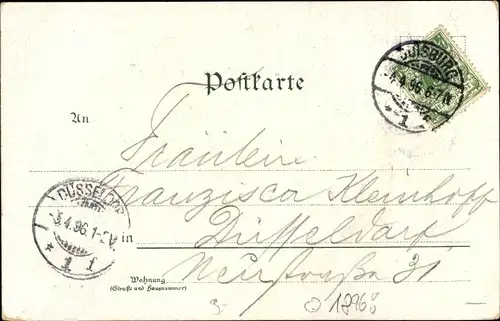 Postkarte
DUISBURG
-4.4.96.6-7N
* 1
An
Fräulein
Franzisca Kleinhoff
DÜSSELDO
-5.4.96.1-2V.
* 1 f
in Düsseldorf
Neustraße 31
Wohnung
(Straße und Hausnummer)
3-
1896